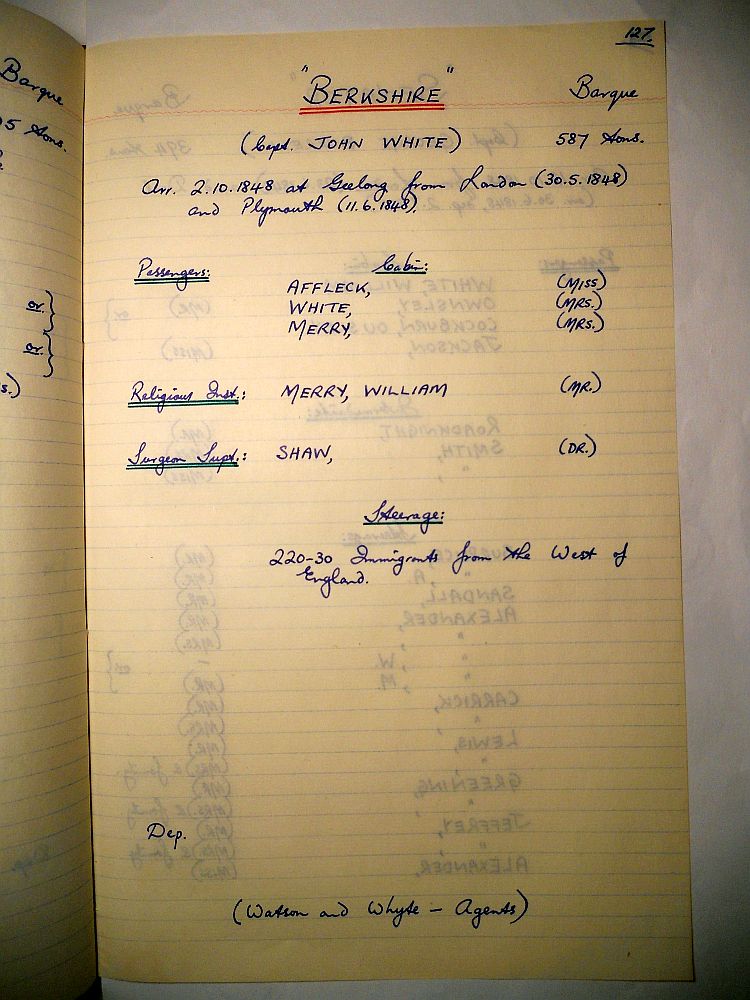 127.
"BERKSHIRE" Barque
(Capt. JOHN WHITE) 587 tons.
Arr. 2.10.1848 at Geelong from London (30.5.1848)
and Plymouth (11.6.1848).
Passengers: Cabin:
AFFLECK, (MISS)
WHITE, (MRS.)
MERRY, (MRS.)
Religious Inst.: MERRY, WILLIAM (MR.)
Surgeon Supt.: SHAW, (DR.)
Steerage:
220-30 Immigrants from the West of
England.
Dep.
(Watson and Whyte - Agents)
Barque
5 tons.
or
or
s.)